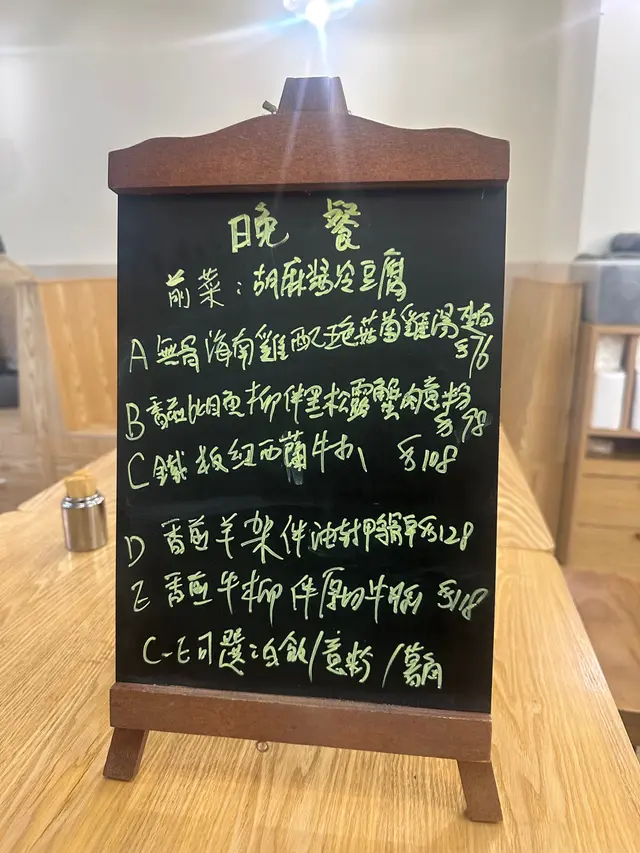 晚餐
前菜：胡麻醬冷豆腐
A 無骨海南雞配羊肚菌菇雞湯麵
$76
B 香煎比目魚柳伴黑松露蟹肉意粉
$98
C 鐵板紐西蘭牛扒 $108
D 香煎羊架伴油封鴨腿 $128
E 香煎牛柳伴厚切牛脷 $118
C-E可選：白飯/意粉/薯角